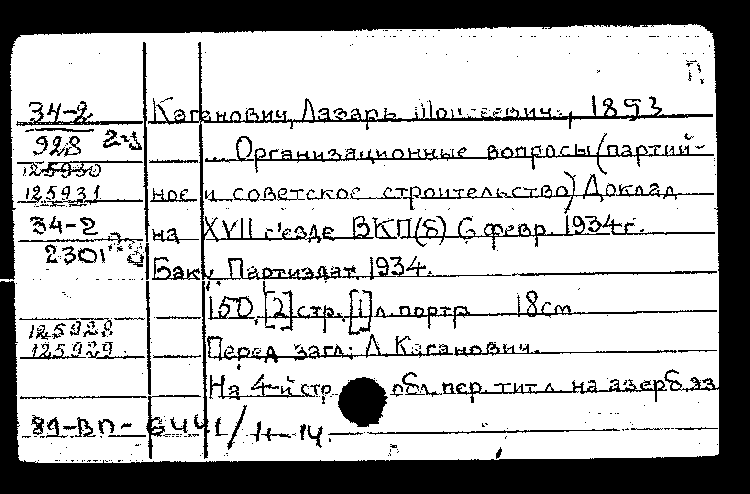 П.
34-2 Каганович, Лазарь Моисеевич, 1893
928 2й ... Организационные вопросы (партий-
125930
125931 ное и советское строительство) Доклад
34-2 на XVII с'езде ВКП(б) 6 февр. 1934г.
2301
Баку. Партиздат 1934.
150, [2] стр. [1] л. портр 18cm
125928
125929 Перед загл: Л. Каганович.
На 4-й стр обл. пер. титл. на азерб. яз
81-ВП-6441/11-14.